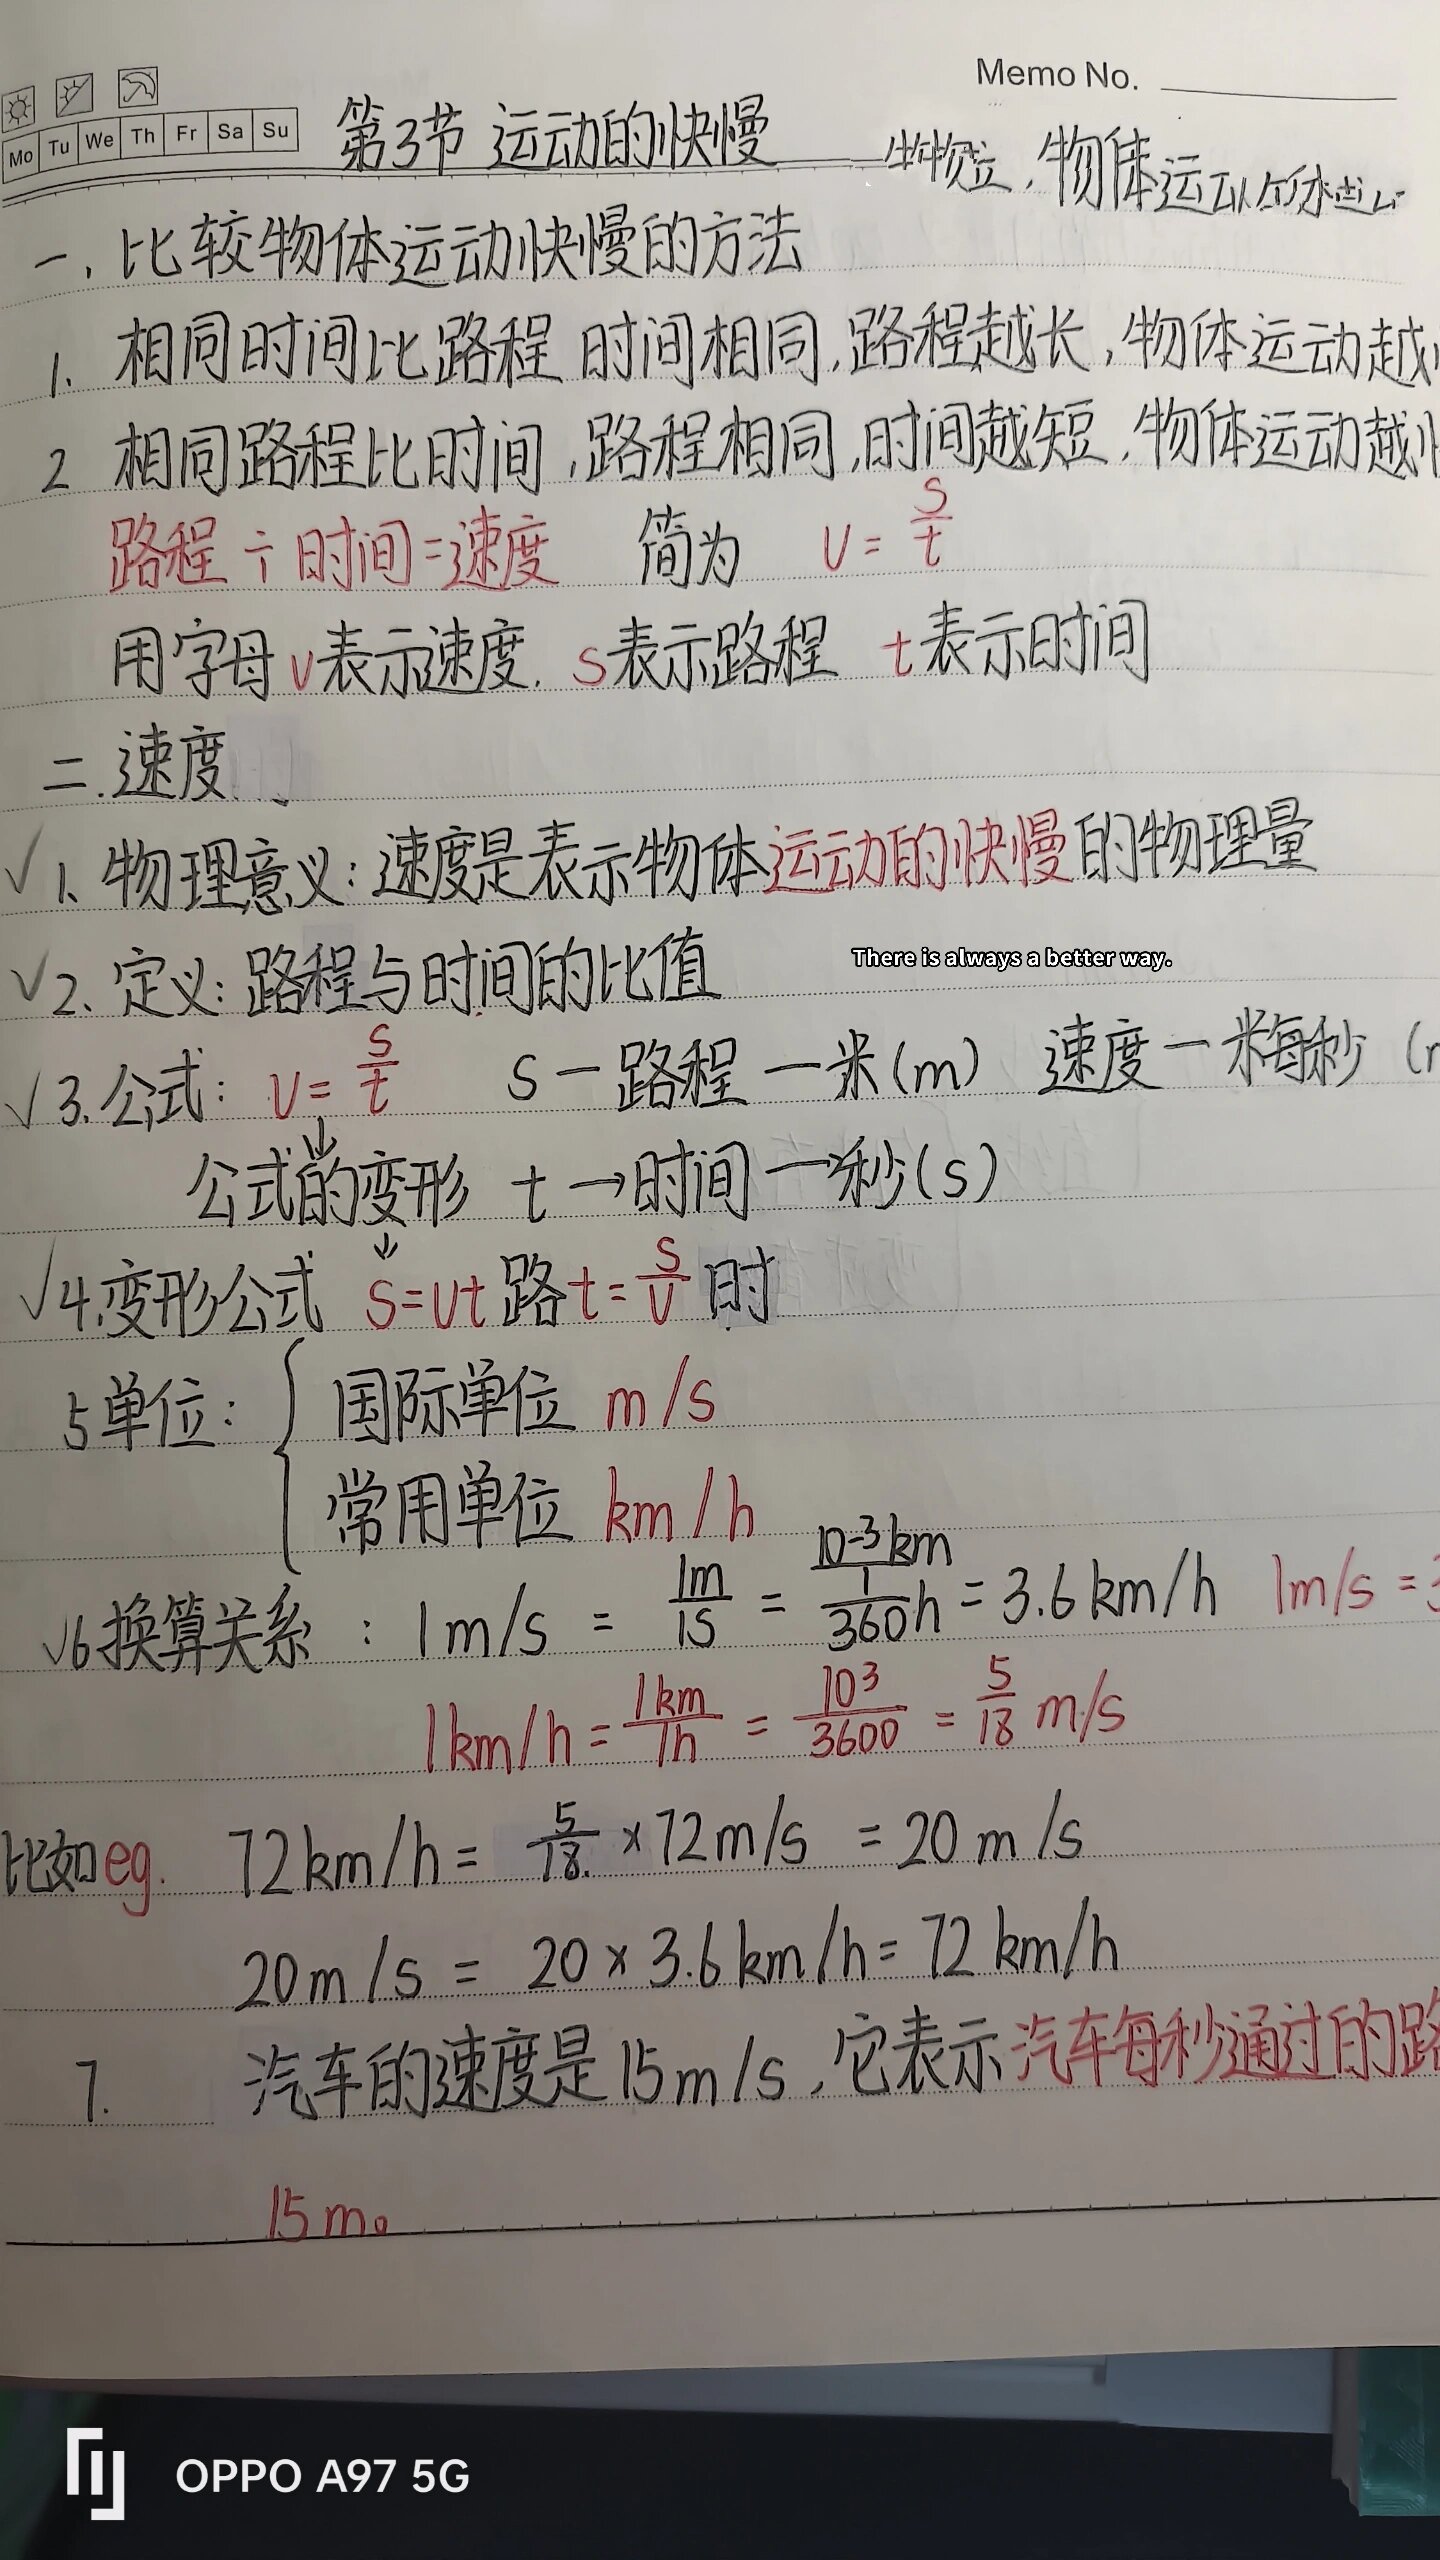 Memo No.
Mo Tu We Th Fr Sa Su
第3节 运动的快慢
一、比较物体运动快慢的方法
1. 相同时间比路程 时间相同,路程越长,物体运动越
2 相同路程比时间,路程相同,时间越短,物体运动越
路程÷时间=速度 简为 v=s/t
用字母v表示速度. s表示路程 t表示时间
二.速度
√1、物理意义:速度是表示物体运动的快慢的物理量
√2、定义:路程与时间的比值
There is always a better way.
√3.公式: v=s/t S—路程—米(m) 速度—米每秒(
↓
公式的变形 t→时间—秒(s)
↓
√4.变形公式 s=vt路t=s/v时
5单位:{国际单位 m/s
常用单位 km/h
√6换算关系:1m/s = 1m/1s = 10-3km/(1/360)h = 3.6km/h 1m/s =
1km/h = 1km/1h = 10³/3600 = 5/18 m/s
比如eg. 72km/h = 5/18 ×72m/s = 20m/s
20m/s = 20×3.6km/h = 72km/h
7. 汽车的速度是15m/s,它表示汽车每秒通过的路
15m。
OPPO A97 5G